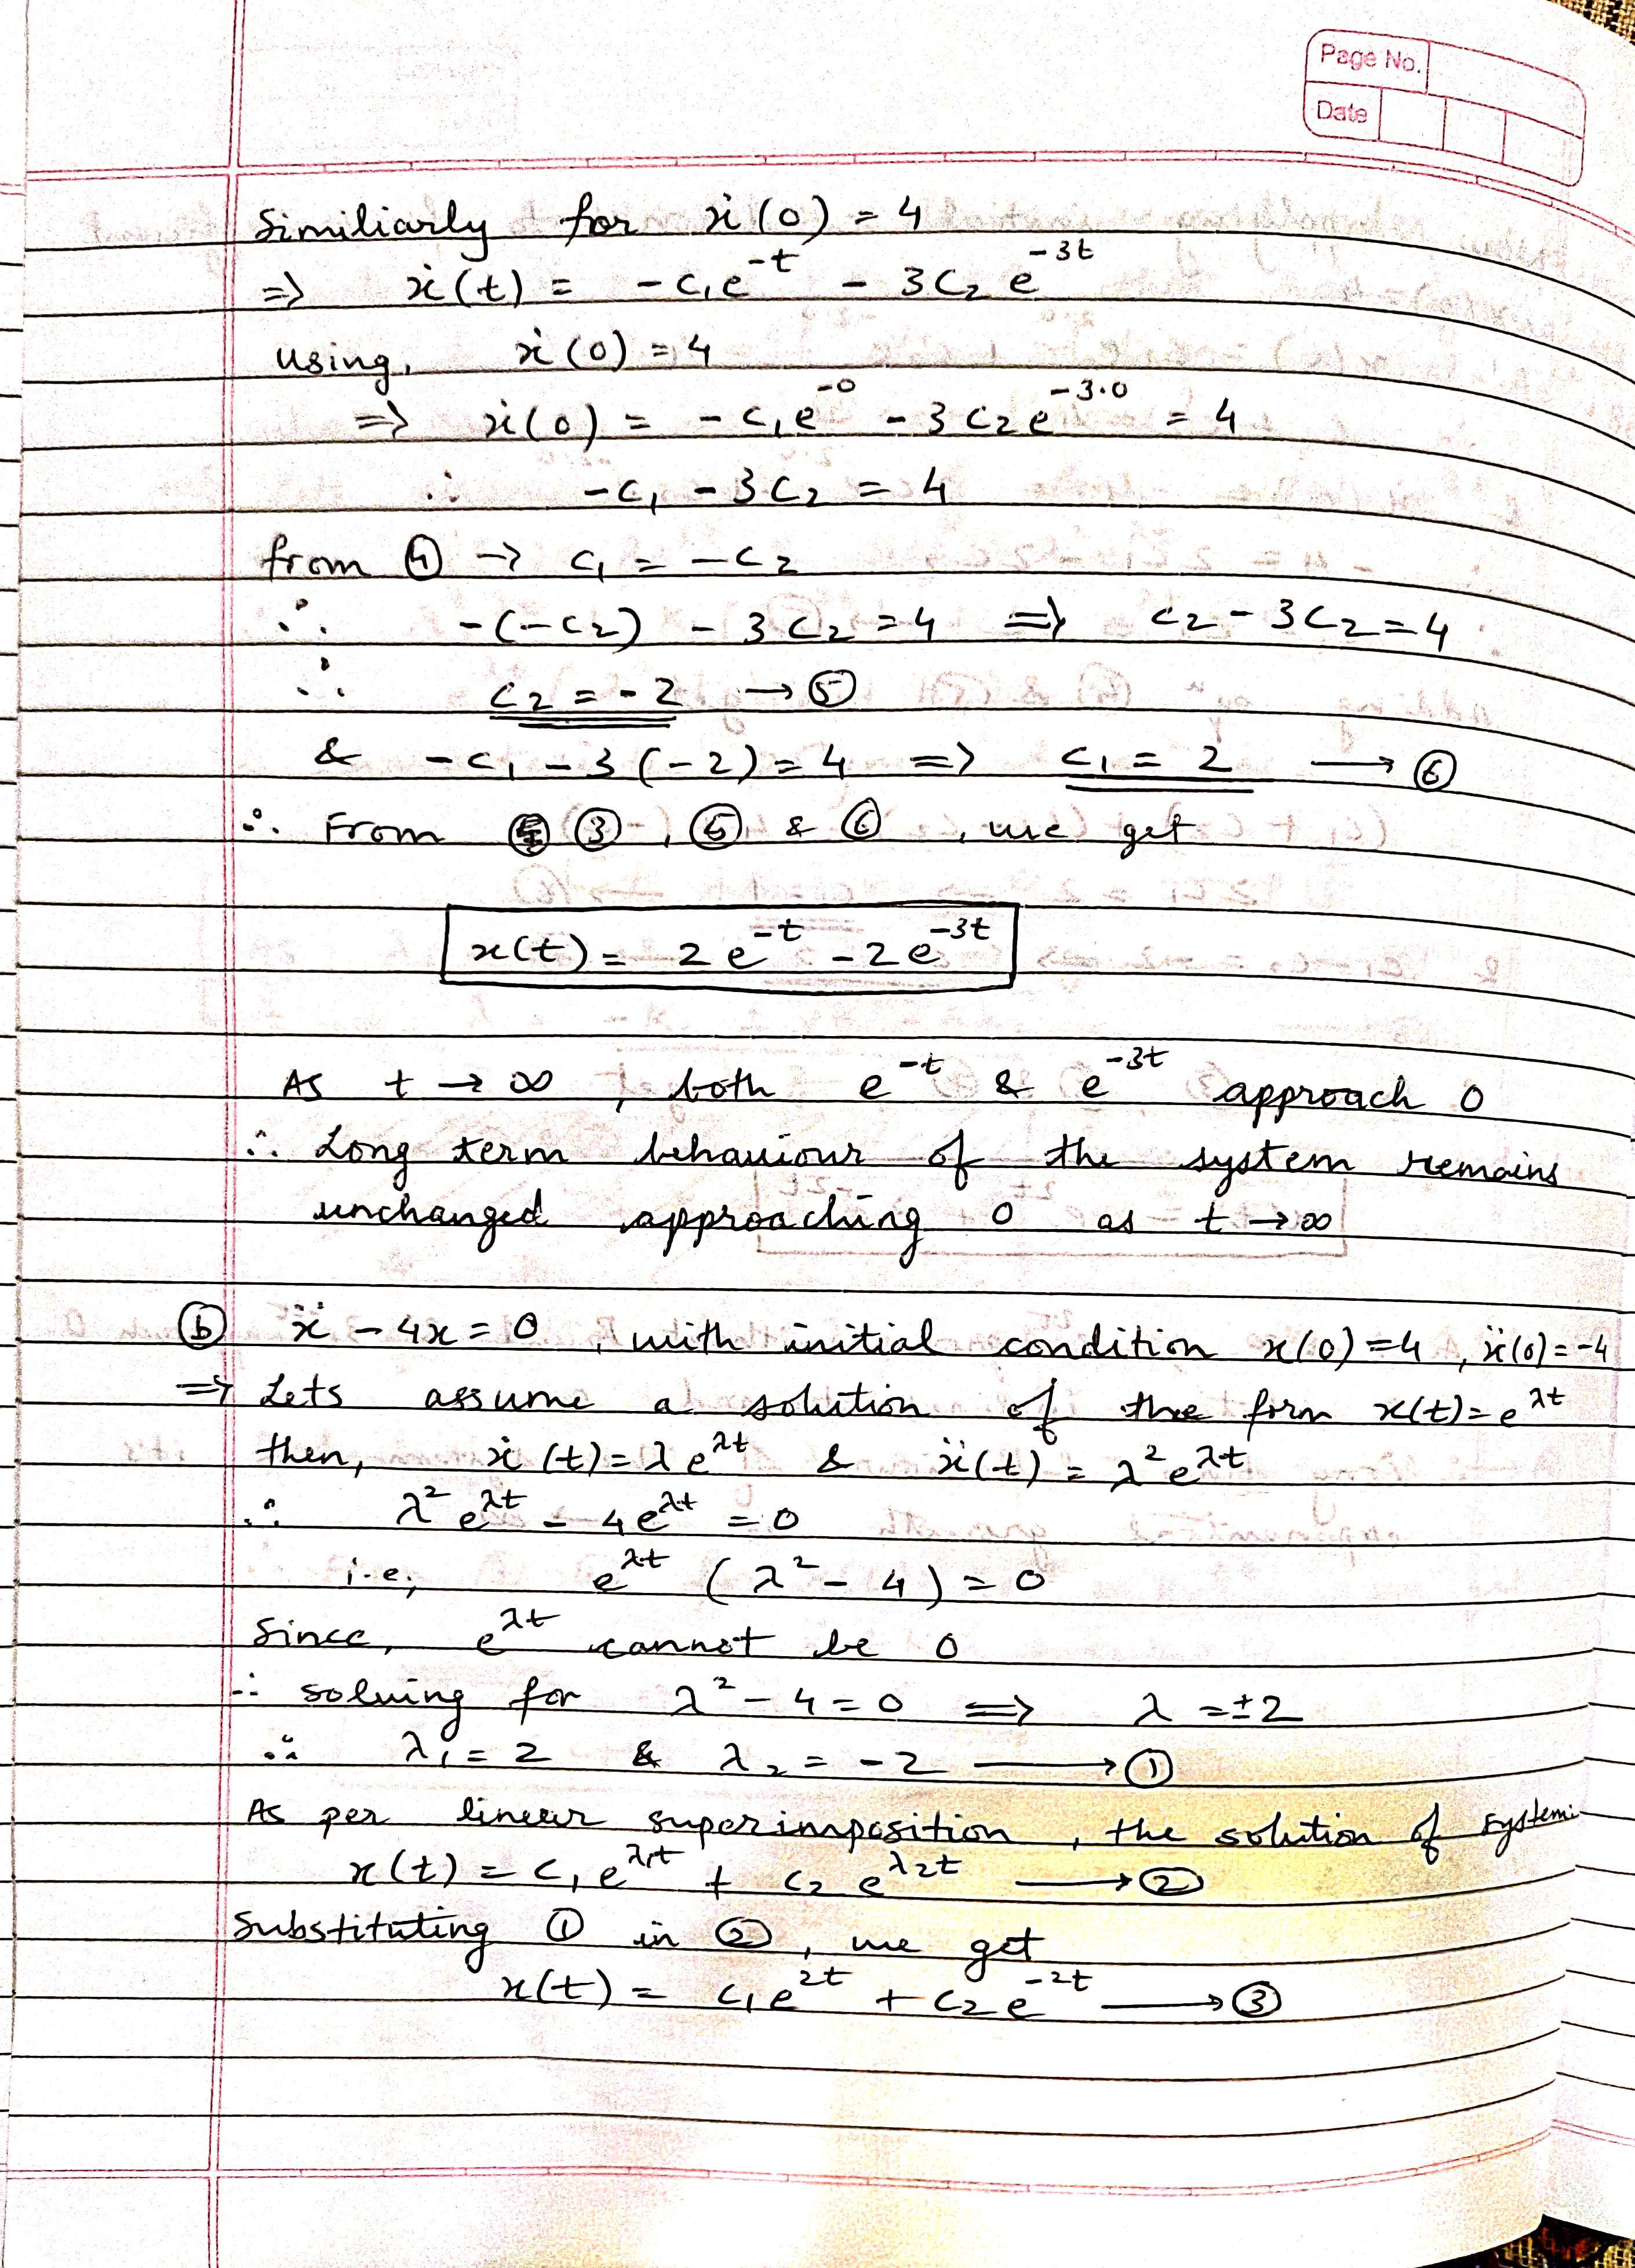 Page No.
Date
Similiarly for ẋ(0) = 4
=> ẋ(t) = -c₁e^-t - 3c₂e^-3t
using, ẋ(0) = 4
=> ẋ(0) = -c₁e^-0 - 3c₂e^-3.0 = 4
∴ -c₁ - 3c₂ = 4
from ④ → c₁ = -c₂
∴ -(-c₂) - 3c₂ = 4 => c₂ - 3c₂ = 4
∴ c₂ = -2 → ⑤
& -c₁ - 3(-2) = 4 => c₁ = 2 → ⑥
∴ From ③, ⑤ & ⑥, we get
x(t) = 2e^-t - 2e^-3t
As t → ∞, both e^-t & e^-3t approach 0
∴ Long term behaviour of the system remains
unchanged approaching 0 as t → ∞
ⓑ ẍ - 4x = 0, with initial condition x(0) = 4, ẍ(0) = -4
=> Lets assume a solution of the form x(t) = e^λt
then, ẋ(t) = λe^λt & ẍ(t) = λ²e^λt
∴ λ²e^λt - 4e^λt = 0
i.e; e^λt (λ² - 4) = 0
Since, e^λt cannot be 0
∴ solving for λ² - 4 = 0 => λ = ±2
∴ λ₁ = 2 & λ₂ = -2 → ①
As per linear superimposition, the solution of system:
x(t) = c₁e^λ₁t + c₂e^λ₂t → ②
Substituting ① in ②, we get
x(t) = c₁e^2t + c₂e^-2t → ③